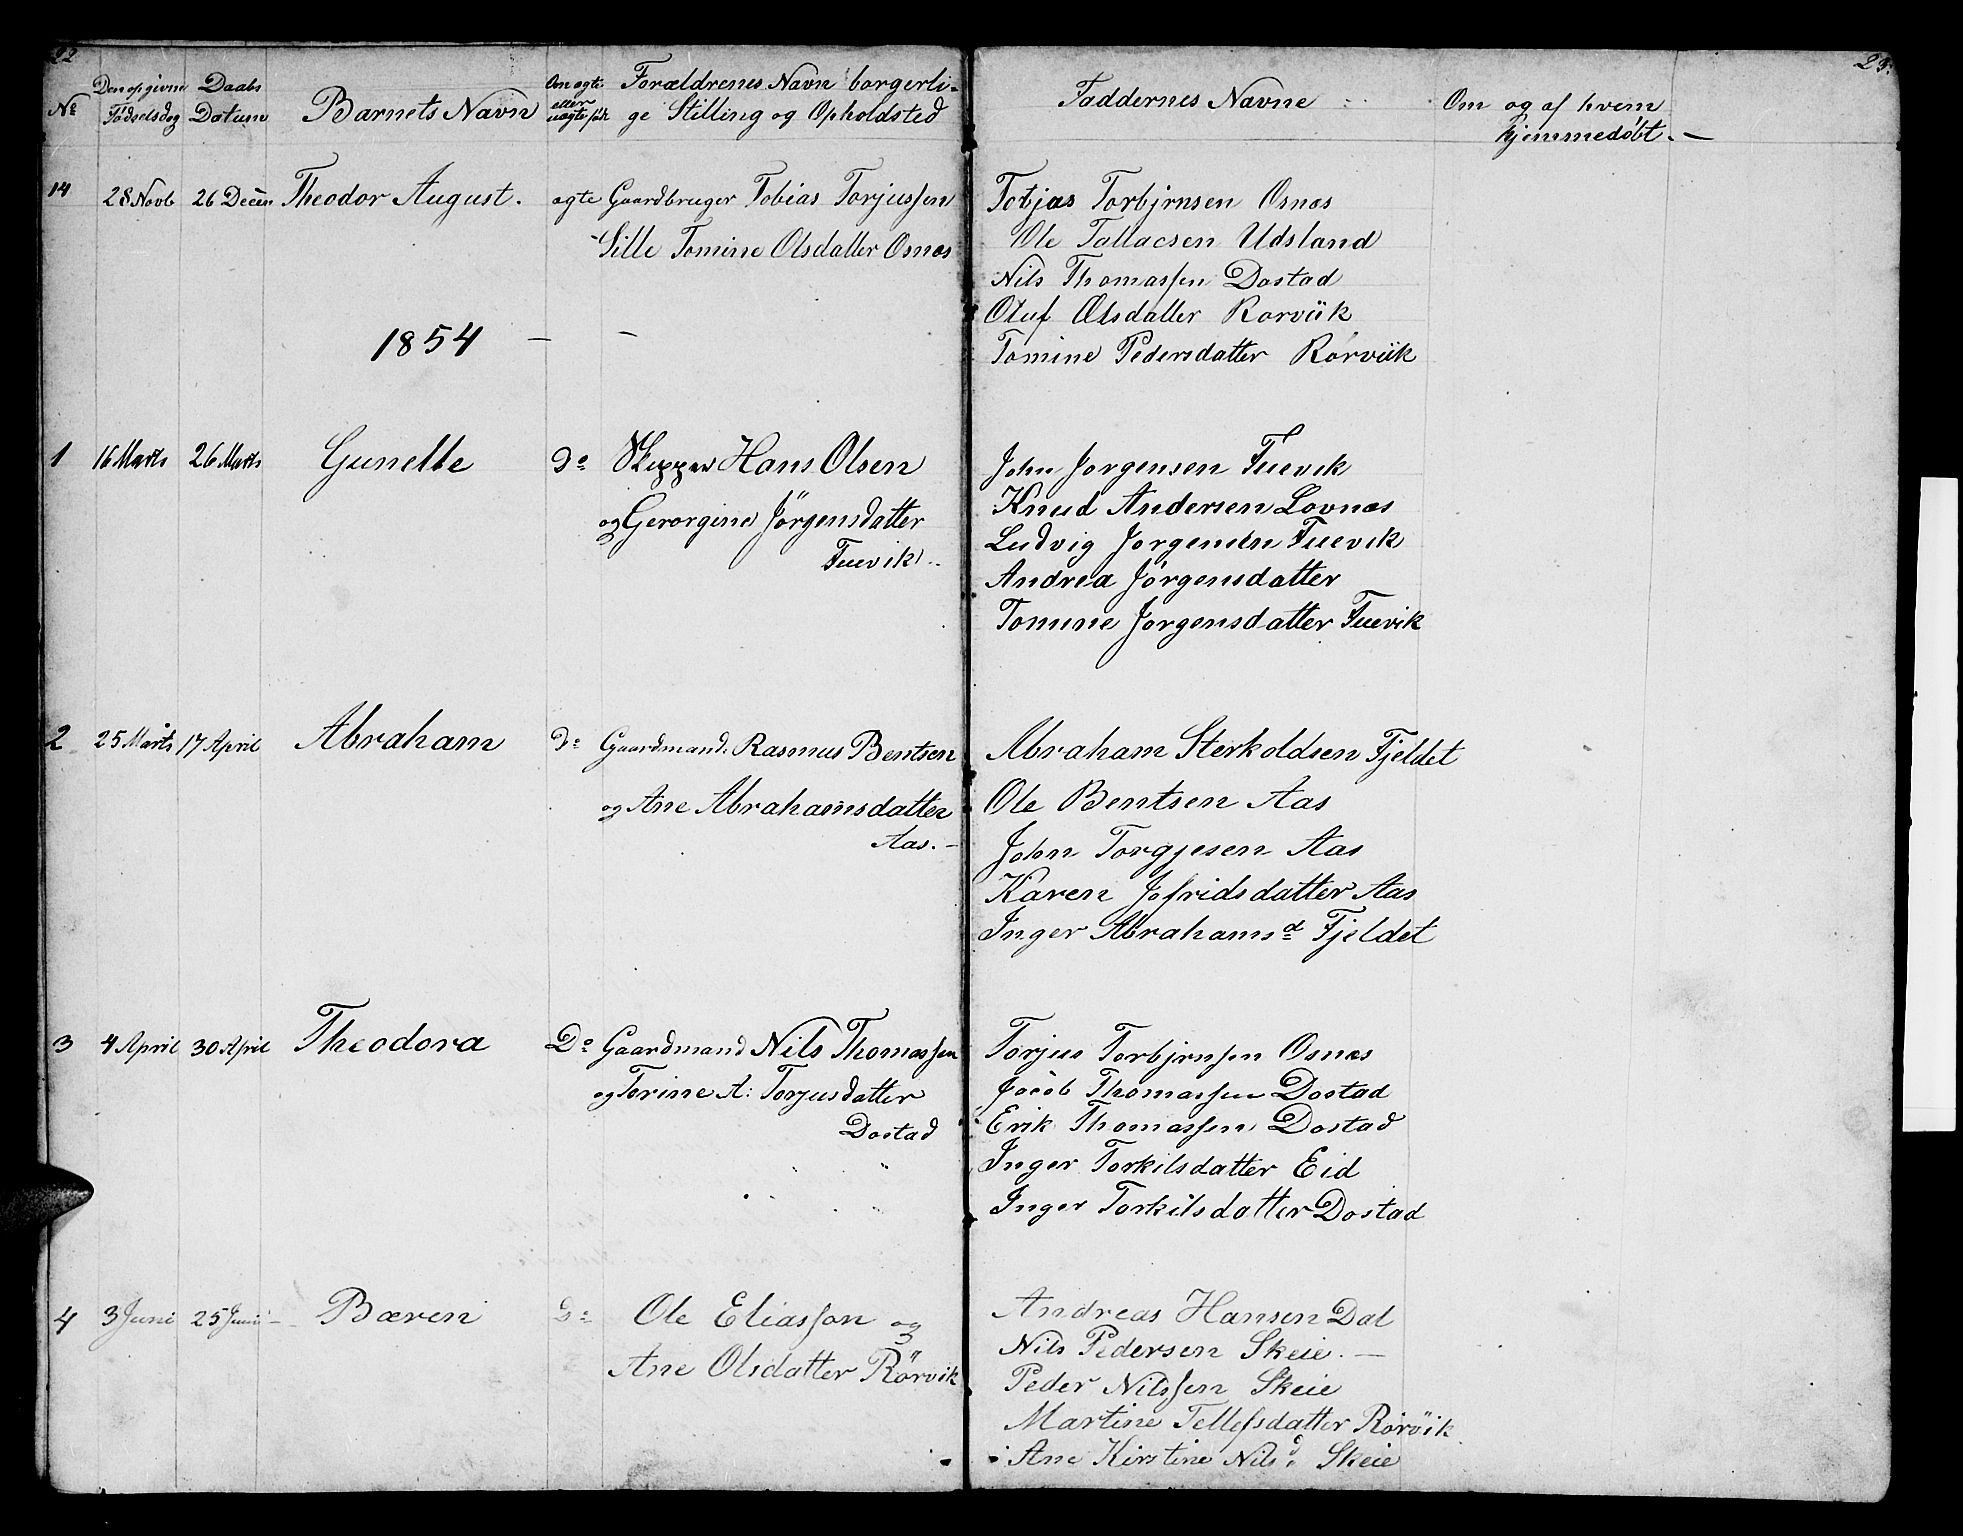 22
23.
No Den opgivne Fødselsdag Daabs Datum Barnets Navn Om ægte eller uægte fød Forældrenes Navn borgerlige Stilling og Opholdsted Faddernes Navne Om og af hvem hjemmedøbt. —
14 28 Novb 26 Decem Theodor August. ægte Gaardbruger Tobias Torjussen
Sille Tomine Olsdatter Osnes
Tobjas Torbjrnsen Osnes
Ole Tallacsen Udsland
Nils Thomassen Dostad
Oluf Olsdatter Rorviik
Tomine Pedersdatter Rørviik
1854 — —
1 16 Marts 26 Marts Gunelle Do Skipper Hans Olsen
og Gerorgine Jörgensdatter
Fuevik
John Jorgensen Fuevik
Knud Andersen Lovnæs
Ludvig Jorgensen Fuevik
Andrea Jörgensdatter
Tomine Jorgensdatter Fuevik
2 25 Marts 17 April Abraham Do Gaardmand Rasmus Bentsen
og Ane Abrahamsdatter
Aas. —
Abraham Sterkoldsen Fjeldet
Ole Bentsen Aas
John Torgjesen Aas
Karen Jofridsdatter Aas
Inger Abrahamsd Fjeldet
3 4 April 30 April Theodora Do Gaardmand Nils Thomassen
og Torine A: Torjusdatter
Dostad
Torjus Torbjrnsen Osnes
Jacob Thomassen Dostad
Erik Thomassen Dostad
Inger Torkilsdatter Eid
Inger Torkilsdatter Dostad
4 3 Juni 25 Juni — Bæren Do Ole Eliasson og
Ane Olsdatter Rörvik
Andreas Hansen Dal
Nils Pedersen Skeie. —
Peder Nilssen Skeie
Martine Tellefsdatter Rörvik
Ane Kirstine Nilsd. Skeie